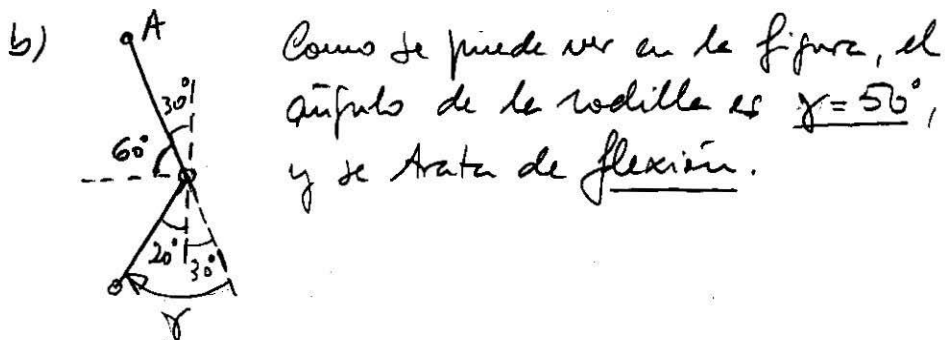 b)
A
30°
60°
20°
30°
γ
Como se puede ver en la figura, el
ángulo de la rodilla es γ = 50°,
y se trata de flexión.